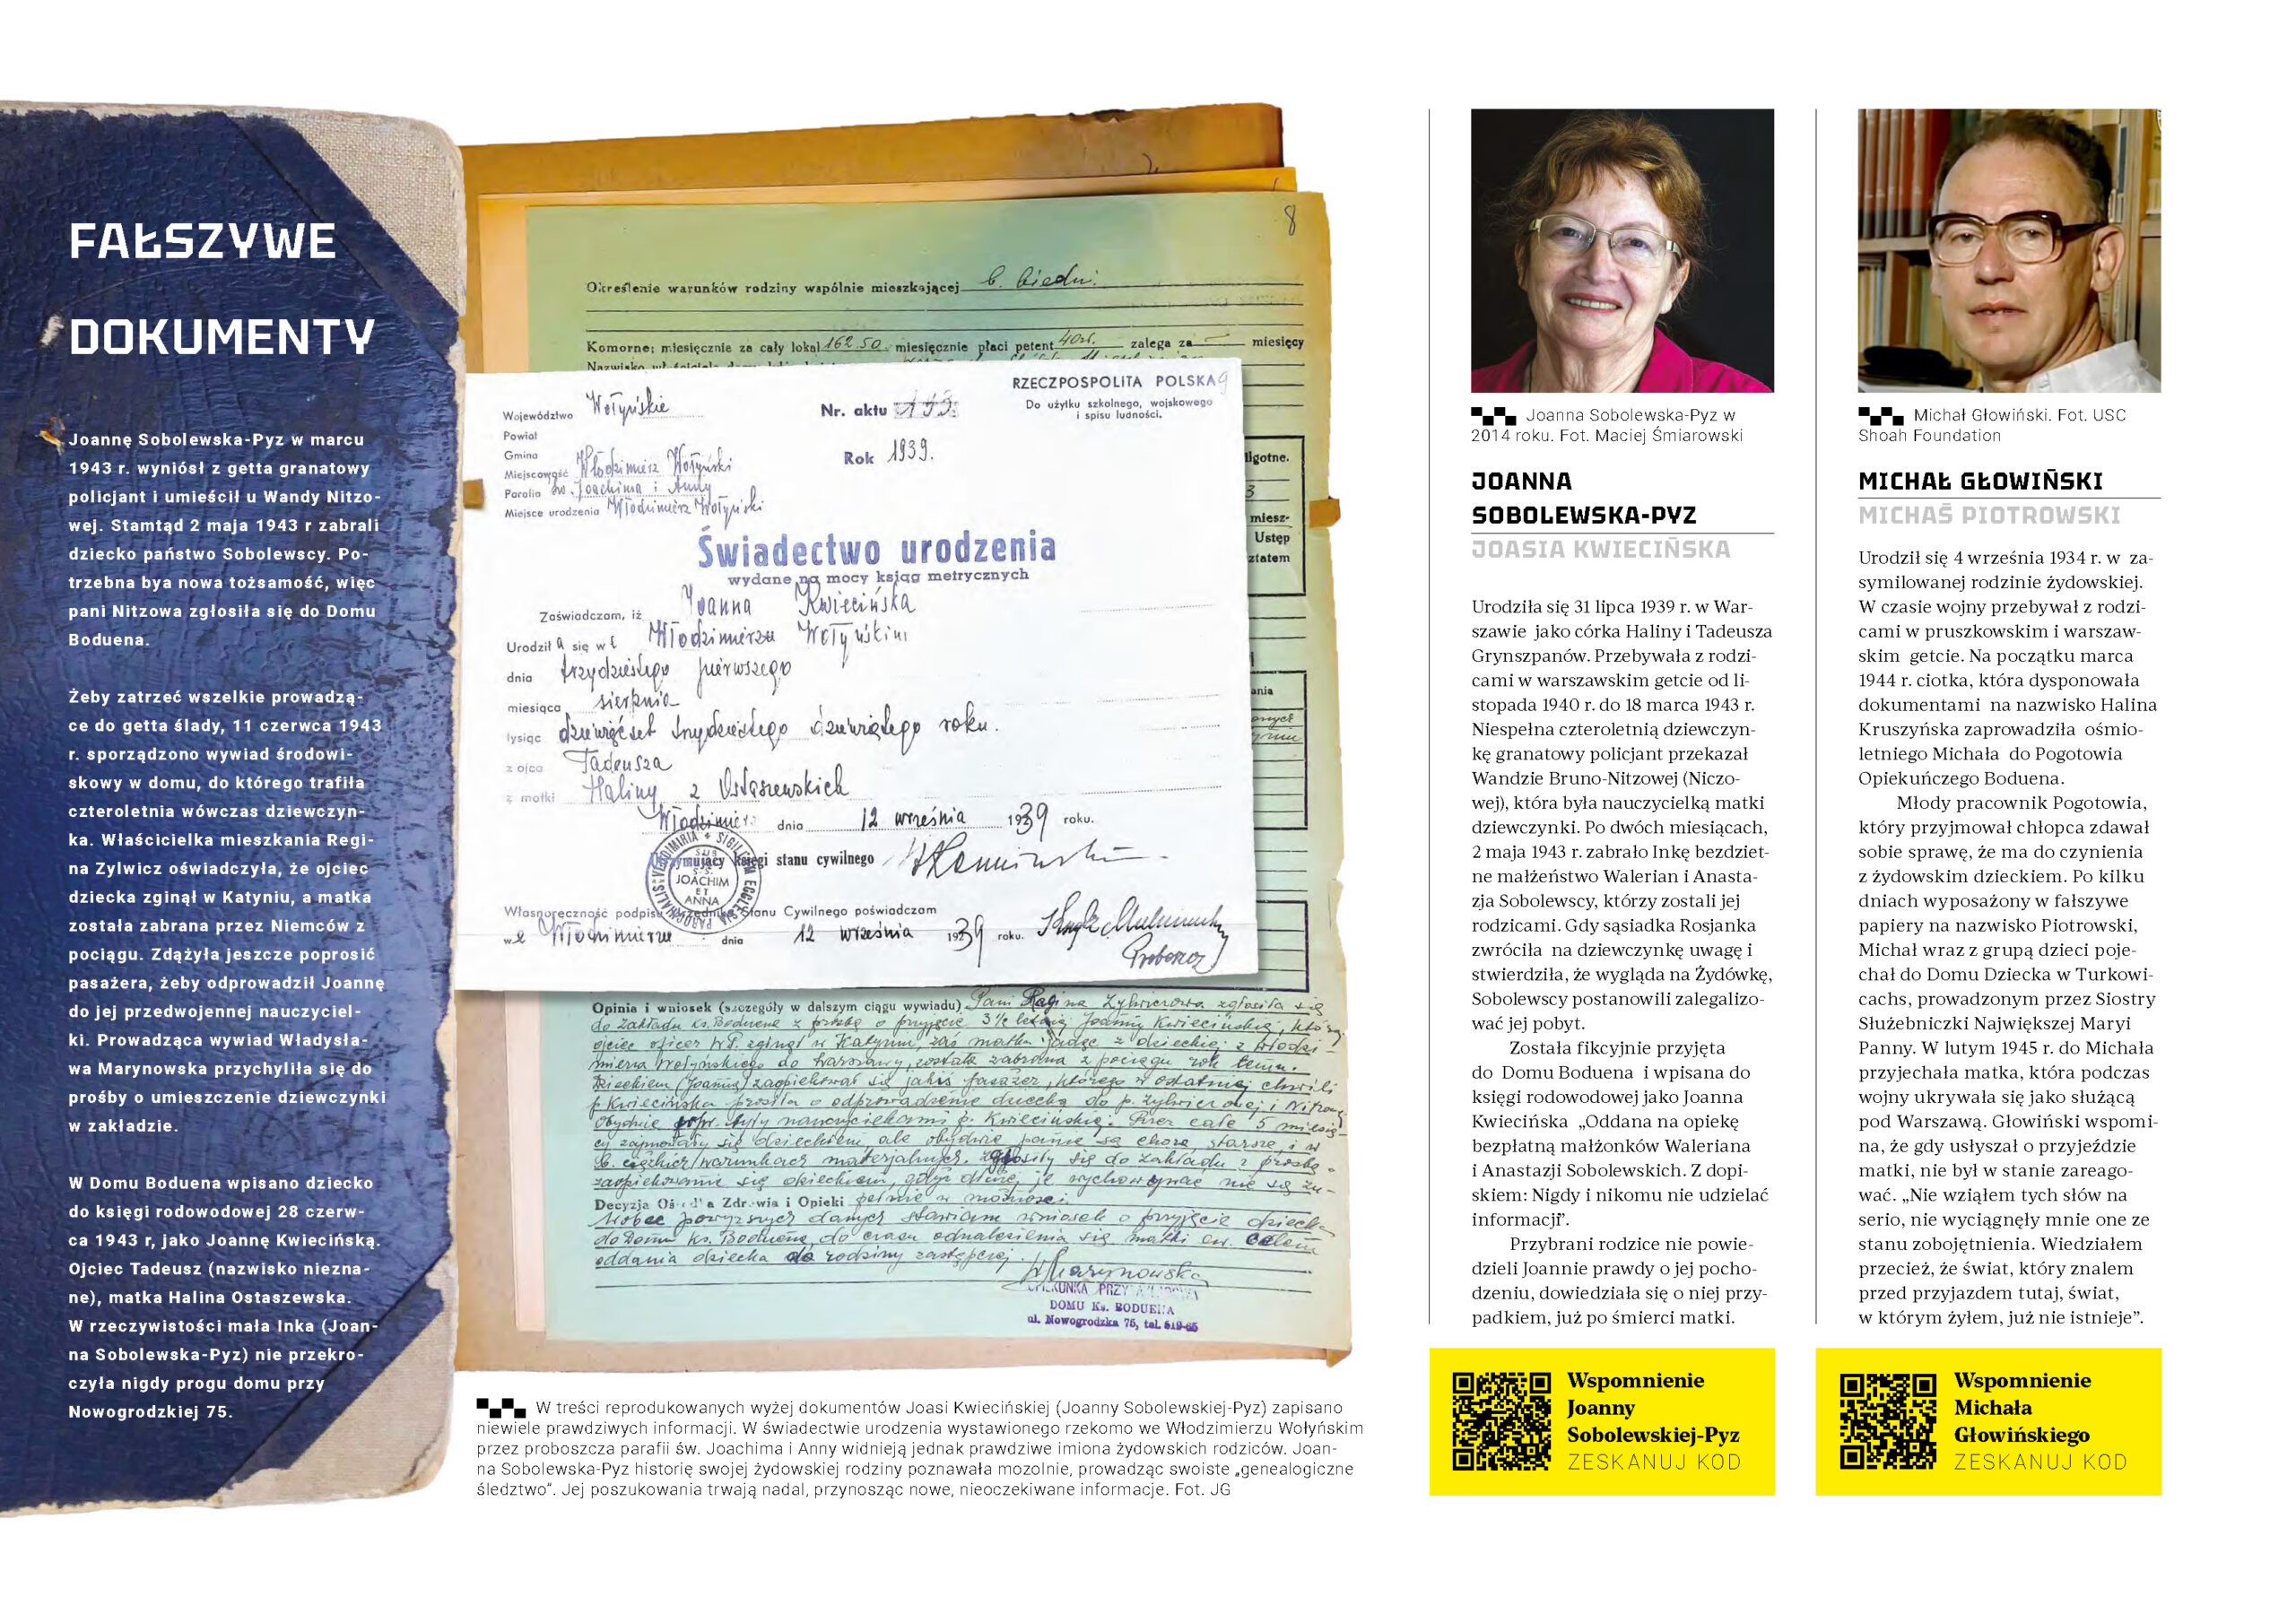 FAŁSZYWE
DOKUMENTY
Joannę Sobolewska-Pyz w marcu
1943 r. wyniósł z getta granatowy
policjant i umieścił u Wandy Nitzo-
wej. Stamtąd 2 maja 1943 r zabrali
dziecko państwo Sobolewscy. Po-
trzebna bya nowa tożsamość, więc
pani Nitzowa zgłosiła się do Domu
Boduena.
Żeby zatrzeć wszelkie prowadzą-
ce do getta ślady, 11 czerwca 1943
r. sporządzono wywiad środowi-
skowy w domu, do którego trafiła
czteroletnia wówczas dziewczyn-
ka. Właścicielka mieszkania Regi-
na Zylwicz oświadczyła, że ojciec
dziecka zginął w Katyniu, a matka
została zabrana przez Niemców z
pociągu. Zdążyła jeszcze poprosić
pasażera, żeby odprowadził Joannę
do jej przedwojennej nauczyciel-
ki. Prowadząca wywiad Władysła-
wa Marynowska przychyliła się do
prośby o umieszczenie dziewczynki
w zakładzie.
W Domu Boduena wpisano dziecko
do księgi rodowodowej 28 czerw-
ca 1943 r, jako Joannę Kwiecińską.
Ojciec Tadeusz (nazwisko niezna-
ne), matka Halina Ostaszewska.
W rzeczywistości mała Inka (Joan-
na Sobolewska-Pyz) nie przekro-
czyła nigdy progu domu przy
Nowogrodzkiej 75.
8
Określenie warunków rodziny wspólnie mieszkającej b. biedni.
Komorne: miesięcznie za cały lokal 162.50 miesięcznie płaci petent 40zł. zalega za miesięcy
RZECZPOSPOLITA POLSKA 9
Do użytku szkolnego, wojskowego
i spisu ludności.
Województwo Wołyńskie
Nr. aktu
Powiat
Gmina
Rok 1939.
Miejscowość Włodzimierz Wołyński
Parafia św. Joachima i Anny
Miejsce urodzenia Włodzimierz Wołyński
Świadectwo urodzenia
wydane na mocy ksiąg metrycznych
Zaświadczam, iż Joanna Kwiecińska
Urodził a się w e Włodzimierzu Wołyńskim
dnia trzydziestego pierwszego
miesiąca sierpnia
tysiąc dziewięćset trzydziestego dziewiątego roku.
z ojca Tadeusza
z matki Haliny z Ostaszewskich
Włodzimierz dnia 12 września 1939 roku.
Utrzymujący księgi stanu cywilnego
JOACHIM
ET
ANNA
Własnoręczność podpisu Urzędnika Stanu Cywilnego poświadczam
w e Włodzimierzu dnia 12 września 1939 roku.
Proboszcz
lgotne.
3
miesz-
Ustęp
ztatem
ania
Opinia i wniosek (szczegóły w dalszym ciągu wywiadu) Pani Regina Zylwiczowa zgłosiła się
do zakładu ks. Boduena z prośbą o przyjęcie 3½ letniej Joanny Kwiecińskiej, której
ojciec oficer W.P. zginął w Katyniu zaś matka jadąc z dzieckiem z Włodzi-
mierza Wołyńskiego do Warszawy, została zabrana z pociągu rok temu.
Dzieckiem (Joanną) zaopiekował się jakiś pasażer, którego w ostatniej chwili
p. Kwiecińska prosiła o odprowadzenie dziecka do p. Zylwiczowej i Nitzowej
Obydwie były nauczycielkami p. Kwiecińskiej. Przez całe 5 miesię-
cy zajmowały się dzieckiem, ale obydwie panie są chore, starsze i w
b. ciężkich warunkach materjalnych. Zgłosiły się do zakładu z prośbą o
zaopiekowanie się dzieckiem, gdyż dłużej je wychowywać nie są zu-
Decyzja Ośr d a Zdrowia i Opieki pełnie w możności.
Wobec powyższych danych stawiam wniosek o przyjęcie dziecka
do Domu ks. Boduena, do czasu odnalezienia się matki ew. celem
oddania dziecka do rodziny zastępczej.
WMarynowska
OPIEKUNKA PRZY
DOMU Ks. BODUENA
ul. Nowogrodzka 75, tel.
W treści reprodukowanych wyżej dokumentów Joasi Kwiecińskiej (Joanny Sobolewskiej-Pyz) zapisano
niewiele prawdziwych informacji. W świadectwie urodzenia wystawionego rzekomo we Włodzimierzu Wołyńskim
przez proboszcza parafii św. Joachima i Anny widnieją jednak prawdziwe imiona żydowskich rodziców. Joan-
na Sobolewska-Pyz historię swojej żydowskiej rodziny poznawała mozolnie, prowadząc swoiste „genealogiczne
śledztwo”. Jej poszukowania trwają nadal, przynosząc nowe, nieoczekiwane informacje. Fot. JG
Joanna Sobolewska-Pyz w
2014 roku. Fot. Maciej Śmiarowski
JOANNA
SOBOLEWSKA-PYZ
JOASIA KWIECIŃSKA
Urodziła się 31 lipca 1939 r. w War-
szawie jako córka Haliny i Tadeusza
Grynszpanów. Przebywała z rodzi-
cami w warszawskim getcie od li-
stopada 1940 r. do 18 marca 1943 r.
Niespełna czteroletnią dziewczyn-
kę granatowy policjant przekazał
Wandzie Bruno-Nitzowej (Niczo-
wej), która była nauczycielką matki
dziewczynki. Po dwóch miesiącach,
2 maja 1943 r. zabrało Inkę bezdziet-
ne małżeństwo Walerian i Anasta-
zja Sobolewscy, którzy zostali jej
rodzicami. Gdy sąsiadka Rosjanka
zwróciła na dziewczynkę uwagę i
stwierdziła, że wygląda na Żydówkę,
Sobolewscy postanowili zalegalizo-
wać jej pobyt.
Została fikcyjnie przyjęta
do Domu Boduena i wpisana do
księgi rodowodowej jako Joanna
Kwiecińska „Oddana na opiekę
bezpłatną małżonków Waleriana
i Anastazji Sobolewskich. Z dopi-
skiem: Nigdy i nikomu nie udzielać
informacji”.
Przybrani rodzice nie powie-
dzieli Joannie prawdy o jej pocho-
dzeniu, dowiedziała się o niej przy-
padkiem, już po śmierci matki.
Wspomnienie
Joanny
Sobolewskiej-Pyz
ZESKANUJ KOD
Michał Głowiński. Fot. USC
Shoah Foundation
MICHAŁ GŁOWIŃSKI
MICHAŚ PIOTROWSKI
Urodził się 4 września 1934 r. w za-
symilowanej rodzinie żydowskiej.
W czasie wojny przebywał z rodzi-
cami w pruszkowskim i warszaw-
skim getcie. Na początku marca
1944 r. ciotka, która dysponowała
dokumentami na nazwisko Halina
Kruszyńska zaprowadziła ośmio-
letniego Michała do Pogotowia
Opiekuńczego Boduena.
Młody pracownik Pogotowia,
który przyjmował chłopca zdawał
sobie sprawę, że ma do czynienia
z żydowskim dzieckiem. Po kilku
dniach wyposażony w fałszywe
papiery na nazwisko Piotrowski,
Michał wraz z grupą dzieci poje-
chał do Domu Dziecka w Turkowi-
cachs, prowadzonym przez Siostry
Służebniczki Największej Maryi
Panny. W lutym 1945 r. do Michała
przyjechała matka, która podczas
wojny ukrywała się jako służącą
pod Warszawą. Głowiński wspomi-
na, że gdy usłyszał o przyjeździe
matki, nie był w stanie zareago-
wać. „Nie wziąłem tych słów na
serio, nie wyciągnęły mnie one ze
stanu zobojętnienia. Wiedziałem
przecież, że świat, który znalem
przed przyjazdem tutaj, świat,
w którym żyłem, już nie istnieje”.
Wspomnienie
Michała
Głowińskiego
ZESKANUJ KOD